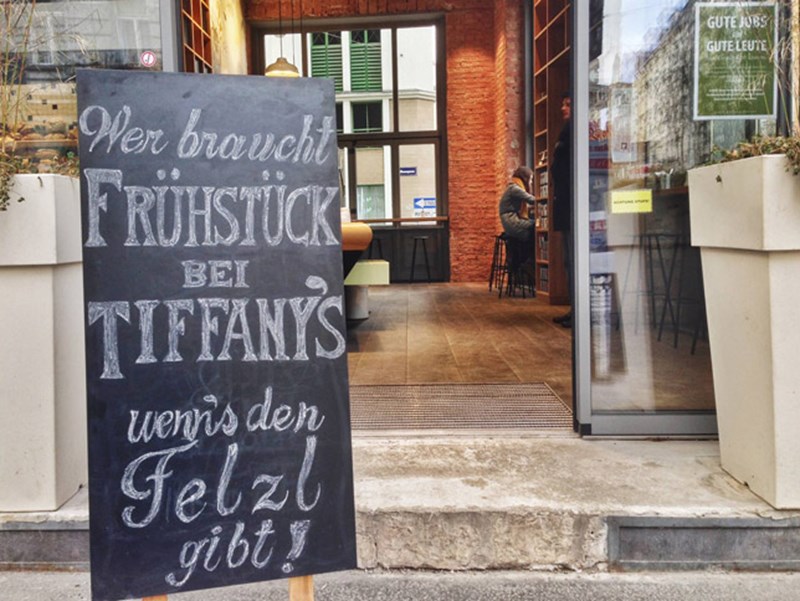 Wer braucht
FRÜHSTÜCK
BEI
TIFFANY'S
wenn's den
Felzl
gibt!
GUTE JOBS
GUTE LEUTE